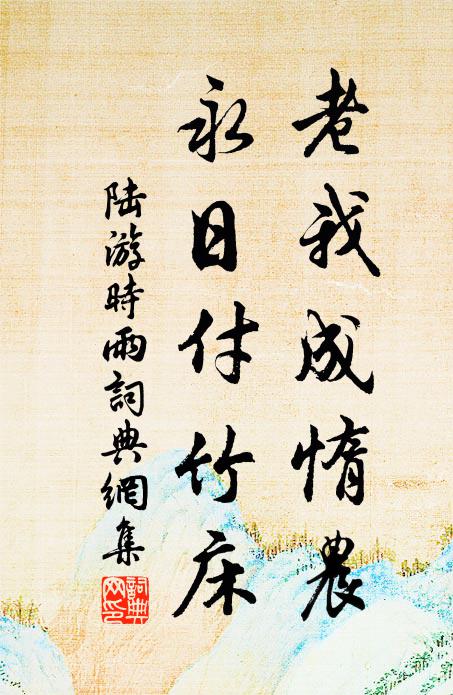 老我成惰農
永日付竹床
陆游時雨詞典網集
詞典网印